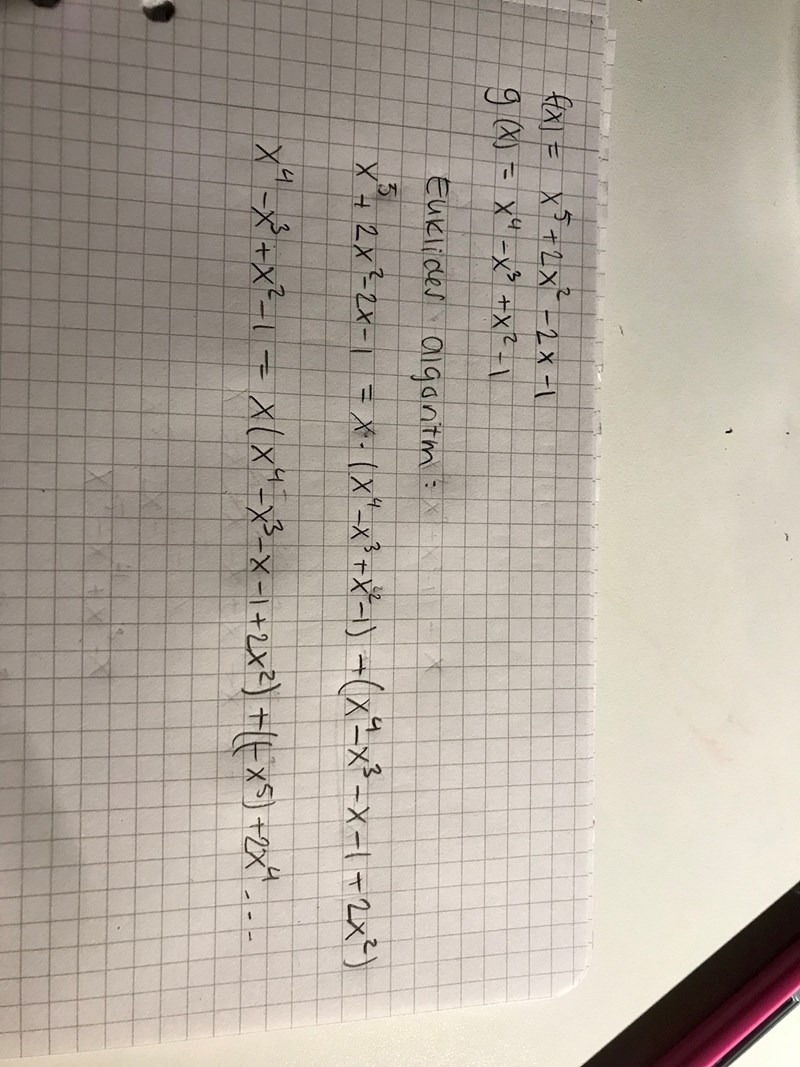 f(x) = x⁵ + 2x² - 2x - 1
g(x) = x⁴ - x³ + x² - 1
Euklides algoritm:
x⁵ + 2x² - 2x - 1 = x · (x⁴ - x³ + x² - 1) + (x⁴ - x³ - x - 1 + 2x²)
x⁴ - x³ + x² - 1 = x(x⁴ - x³ - x - 1 + 2x²) + ((-x⁵) + 2x⁴ ....